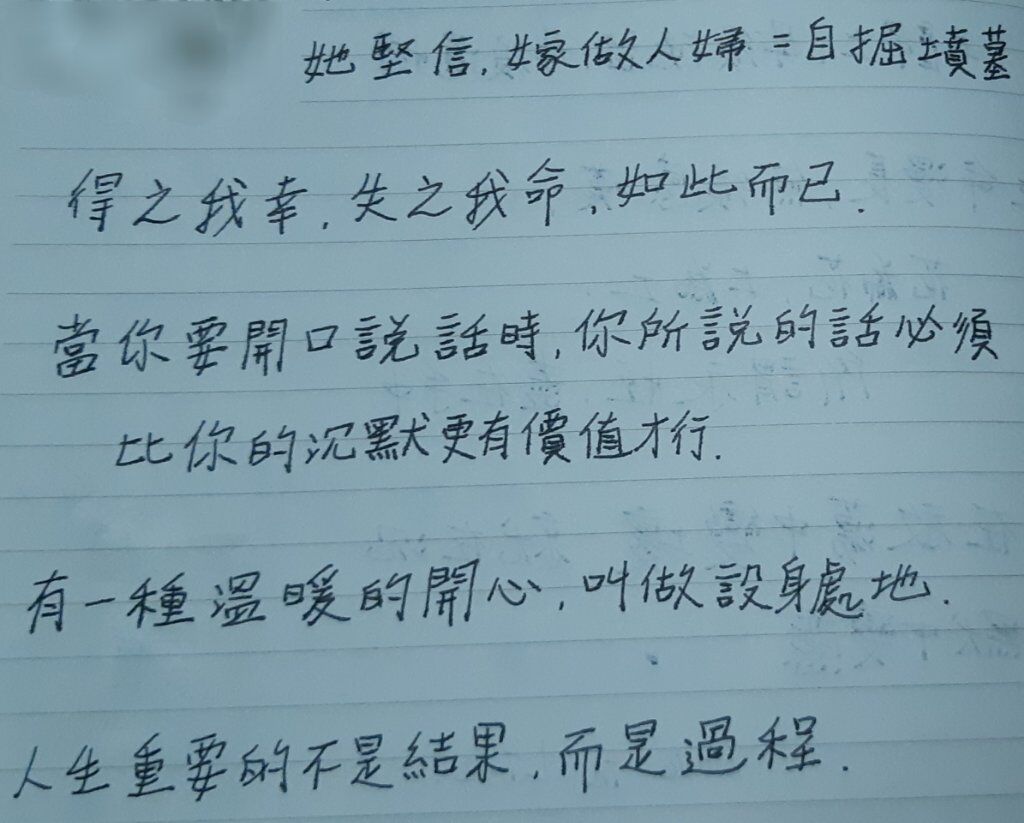 她堅信,嫁做人婦=自掘墳墓
得之我幸,失之我命,如此而已.
當你要開口說話時,你所說的話必須
比你的沉默更有價值才行.
有一種溫暖的開心,叫做設身處地.
人生重要的不是結果,而是過程.